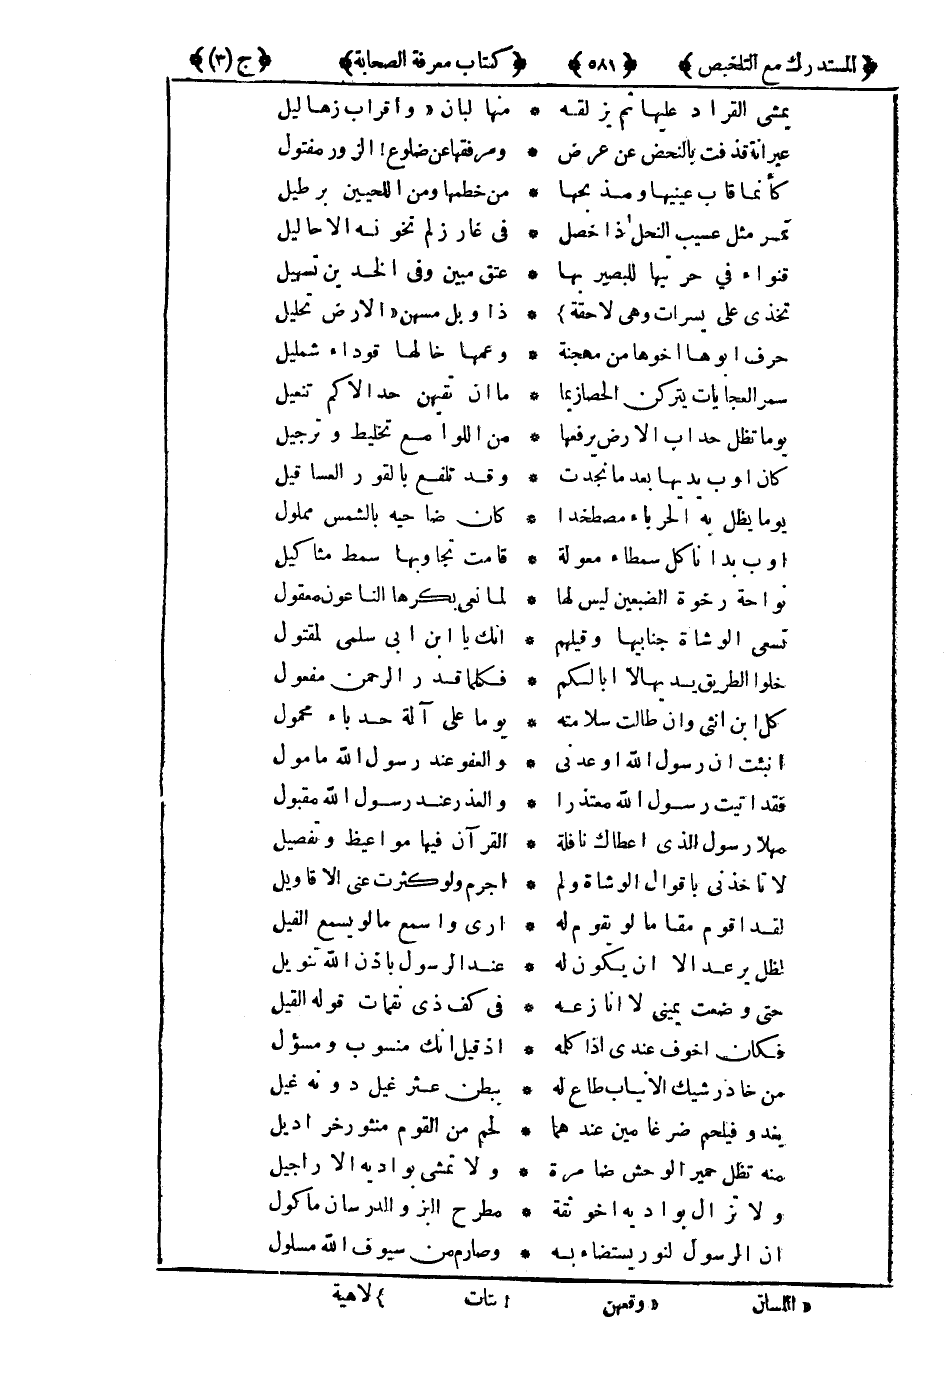 ﴿المستدرك مع التلخيص﴾ ﴿٥٨١﴾ ﴿كتاب معرفة الصحابة﴾ ﴿ج (٣)﴾
يمشى القراد عليها ثم يزلقه * منها لبان « واقراب زهاليل
عيرانة قذفت بالنحض عن عرض * ومرفقها عن ضلوع ا الزور مفتول
كأنما قاب عينيها ومذبحها * من خطمها ومن اللحيين برطيل
تمر مثل عسيب النحل ذا خصل * فى غارز لم تخونه الاحاليل
قنواء في حرتيها للبصير بها * عتق مبين وفى الخدين تسهيل
تخذى على يسرات وهى لاحقة } * ذا وبل مسهن « الارض تحليل
حرف ابوها اخوها من مهجنة * وعمها خالها قوداء شمليل
سمر العجايات يتركن الحصازيما * ما ان تقيهن حد الاكم تنعيل
يوما تظل حداب الارض يرفعها * من اللوامع تخليط وترجيل
كان اوب يديها بعد ما نجدت * وقد تلفع بالقور العساقيل
يوما يظل به الحرباء مصطخدا * كان ضاحيه بالشمس مملول
اوب بدا ناكل سمطاء معولة * قامت تجاوبها سمط مثاكيل
نواحة رخوة الضبعين ليس لها * لما نعى بكرها الناعون معقول
تسعى الوشاة جنابيها وقيلهم * انك يا ابن ابى سلمى لمقتول
خلوا الطريق يديها لا ابالكم * فكلما قدر الرحمن مفعول
كل ابن انثى وان طالت سلامته * يوما على آلة حدباء محمول
انبئت ان رسول الله اوعدنى * والعفو عند رسول الله مامول
فقد اتيت رسول الله معتذرا * والعذر عند رسول الله مقبول
مهلا رسول الذى اعطاك نافلة * القرآن فيها مواعيظ وتفصيل
لا تاخذنى باقوال الوشاة ولم * اجرم ولو كثرت عنى الاقاويل
لقد اقوم مقاما لو تقوم له * ارى واسمع ما لو يسمع الفيل
لظل يرعد الا ان يكون له * عند الرسول باذن الله تنويل
حتى وضعت يمينى لا انازعه * فى كف ذى نقمات قوله القيل
فكان اخوف عندى اذا كلمه * اذ قيل انك منسوب ومسؤل
من خادر شيك الانياب طاع له * ببطن عثر غيل دونه غيل
يغدو فيلحم ضرغامين عندهما * لحم من القوم منثور خراديل
منه تظل حمير الوحش ضامرة * ولا تمشى بواديه الاراجيل
ولا تزال بواديه اخو ثقة * مطرح البز والدرسان ماكول
ان الرسول لنور يستضاء به * وصارم من سيوف الله مسلول
« وقعهن } لاهية